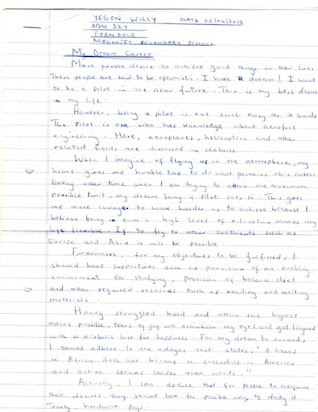 YEGON WILLY DATE 02/04/2012
ADM 327
FORM FOUR
SECONDARY SCHOOL
My Dream Career
Most people desire to achieve good things in their lives.
These people are said to be optimistic. I have a dream! I want
to be a pilot in the near future. This is my best desire
in my life.
However, being a pilot is not such easy as it sounds
The pilot is one who has knowledge about aircraft
engineering. Here, aeroplanes, helicopters and other
related fields are discussed in details.
When I imagine of flying up in the atmosphere, my
heart gives me humble time to do what pertains this career.
Every other time when I am trying to attain the maximum
possible limit, my dream being a pilot sets in. This gives
me more courage to work harder as to achieve because I
believe being in such a high level of education makes my
flexible. If to fly to other continents such as
Europe and Asia it will be possible
Furthermore, for my objectives to be fulfilled, I
should have supervisors such as provision of an enabling
environment for studying, provision of balance diet
and other required resources such as reading and writing
materials.
Having struggled hard and attain the highest
marks possible, tears of joy will overwhelm my eyes and get lingered
with a diabolic but for happiness. For my dream to succeed,
I should adhere to the adages that states, "A lizard
in Africa does not become a crocodile in America
and action speaks louder than words."
Actually, I can deduce that for people to acquire
their desires they should look for possible ways of doing it